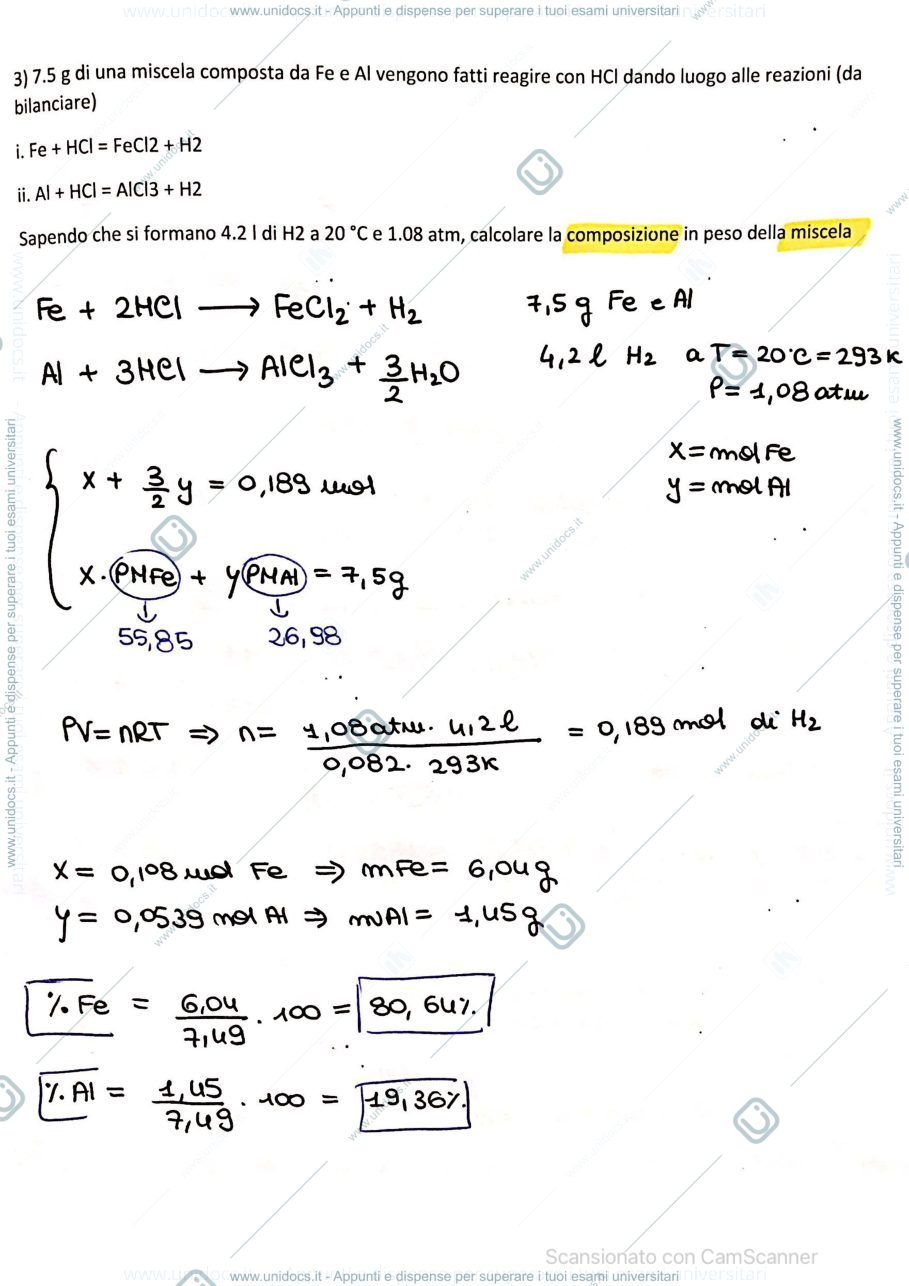 www.unidocs.it - Appunti e dispense per superare i tuoi esami universitari
3) 7.5 g di una miscela composta da Fe e Al vengono fatti reagire con HCl dando luogo alle reazioni (da
bilanciare)
i. Fe + HCl = FeCl2 + H2
ii. Al + HCl = AlCl3 + H2
Sapendo che si formano 4.2 l di H2 a 20 °C e 1.08 atm, calcolare la composizione in peso della miscela
Fe + 2HCl ⟶ FeCl₂ + H₂
7,5 g Fe e Al
Al + 3HCl ⟶ AlCl₃ + 3/2 H₂O
4,2 l H₂ a T= 20°C = 293K
P= 1,08 atm
x = mol Fe
y = mol Al
x + 3/2 y = 0,189 mol
x · PMFe + y PMAl = 7,5g
↓ ↓
55,85 26,98
PV = nRT ⇒ n = 1,08 atm · 4,2 l / 0,082 · 293K = 0,189 mol di H₂
x = 0,108 mol Fe ⇒ mFe = 6,04g
y = 0,0539 mol Al ⇒ mAl = 1,45g
% Fe = 6,04/7,49 · 100 = 80,64%
% Al = 1,45/7,49 · 100 = 19,36%
Scansionato con CamScanner
www.unidocs.it - Appunti e dispense per superare i tuoi esami universitari
www.unidocs.it - Appunti e dispense per superare i tuoi esami universitari
www.unidocs.it - Appunti e dispense per superare i tuoi esami universitari